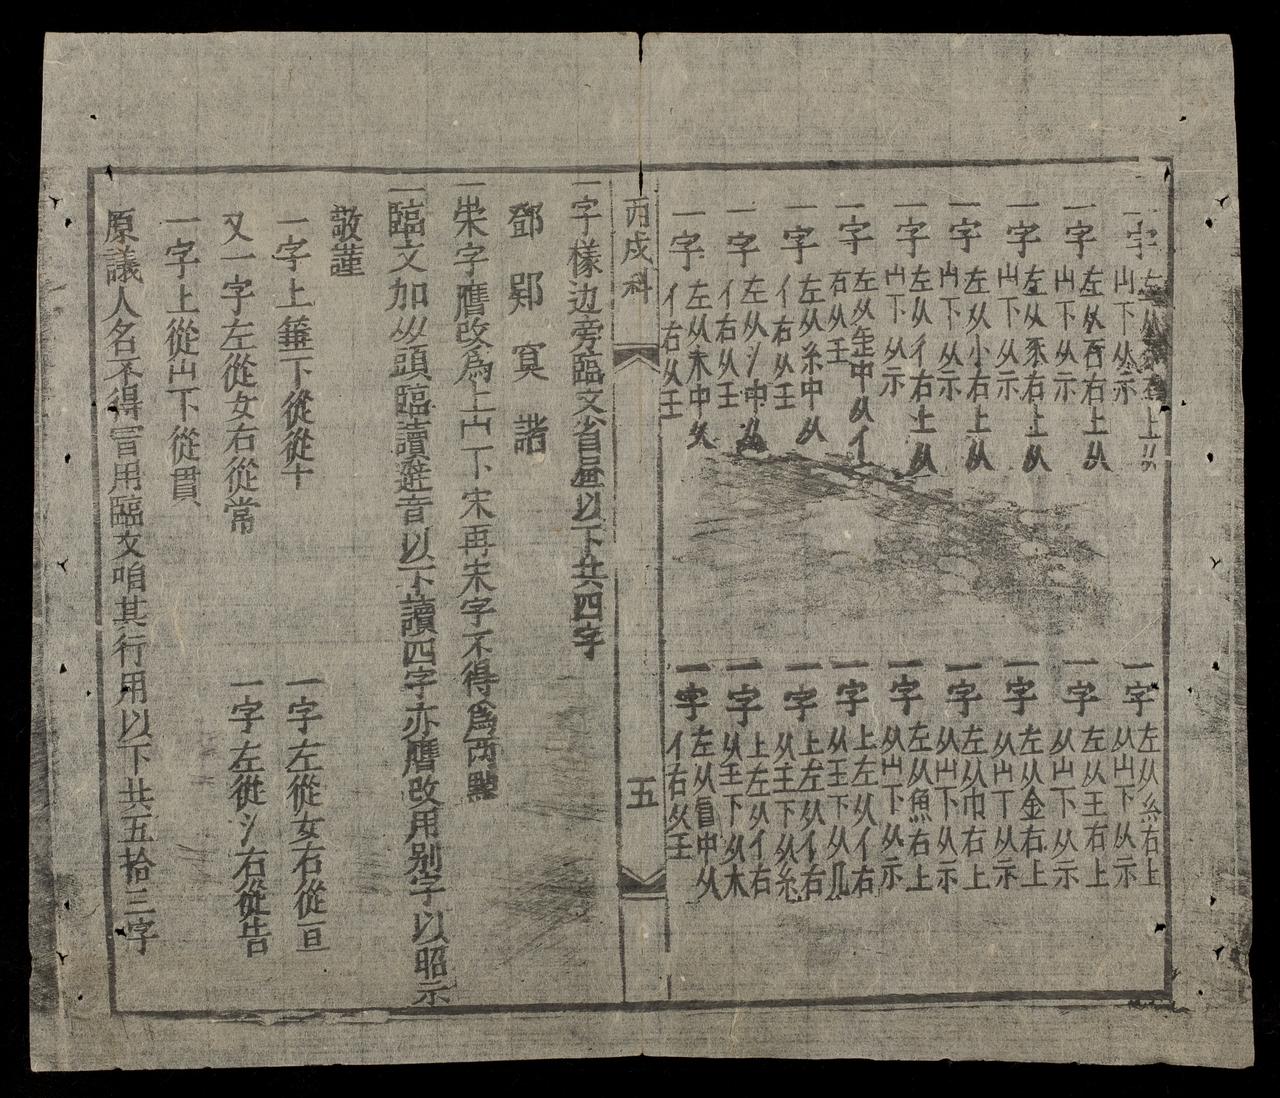 一字左从 右上从山下从示
一字左从吾右上从山下从示
一字左从系右上从山下从示
一字左从小右上从山下从示
一字左从彳右上从山下从示
一字左从歨中从亻右从王
一字左从糸中从亻右从壬
一字左从氵中从亻右从王
一字左从木中从亻右从王
一字左从糸右上从山下从示
一字左从王右上从山下从示
一字左从金右上从山下从示
一字左从巾右上从山下从示
一字左从魚右上从山下从示
一字上左从亻右从王下从几
一字上左从亻右从主下从糸
一字上左从亻右从王下从木
一字左从 中从亻右从王
丙戍科
五
一字樣边旁臨文省 以下共四字
鄧 郢 寞 諸
一 字鷹改為上山下宋再宋字不得為両點
一臨文加从頭臨讀避音以下讀四字亦鷹改用别字以昭示
敬謹
一字上 下從從十
一字左從女右從亘
又一字左從女右從常
一字左從氵右從告
一字上從山下從貫
原議人名不得冒用臨文咱其行用以下共五拾三字